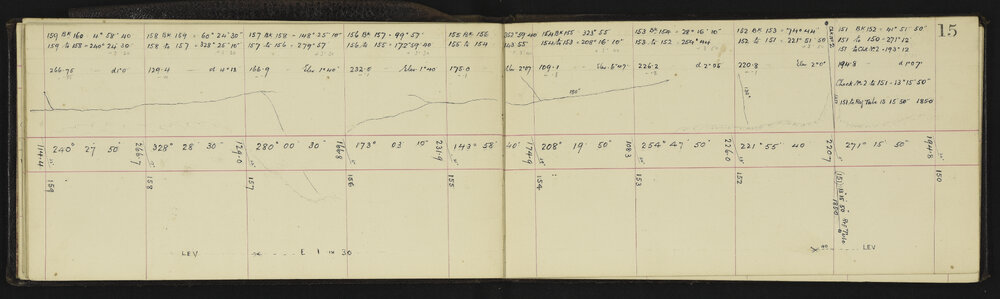 15
159 BK 160 - 4° 58' 40
159 to 158 - 240° 24' 30
158 BK 159 - 60° 24' 30"
158 to 157 - 328° 26' 10"
157 BK 158 - 148° 25' 10
157 to 156 - 279° 57'
156 BK 157 - 99° 57'
156 to 155 - 172° 59' 40
155 BK 156
155 to 154
352° 59' 40
143° 55'
154 BK 155 - 323° 55'
154 to 153 - 208° 16' 10"
153 BK 154 - 28° 16' 10"
153 to 152 - 254° 44
152 BK 153 - 74° 44'
152 to 151 - 221° 51' 50
151 BK 152 - 41° 51' 50"
151 to 150 - 271° 12
151 to Chk M2 - 193° 12
266·75 d 1° 0'
129·4 d 4° 13
166·9 Elev 1° 40'
232·0 Elev 1° 40
175·0
Elev 2° 07
109·1 Elev 5° 47'
226·2 d 2° 05
220·8 Elev 2° 0'
194·8 d 1° 07'
Check M.2 to 151 - 13° 15' 50"
151 to Ref Tube 13 15 50" 1850
180°
114·4
240° 27' 50"
266·7
328° 28' 30"
129·0
280° 00' 30"
166·8
173° 03' 10"
231·9
143° 58'
40"
174·9
208° 19' 50"
108·3
254° 47' 50"
226·0
221° 55' 40
220·7
271° 15' 50"
194·8
159
158
157
156
155
154
153
152
151
13 15 50 Ref Tube
1850
150
LEV
E 1 IX 30
LEV